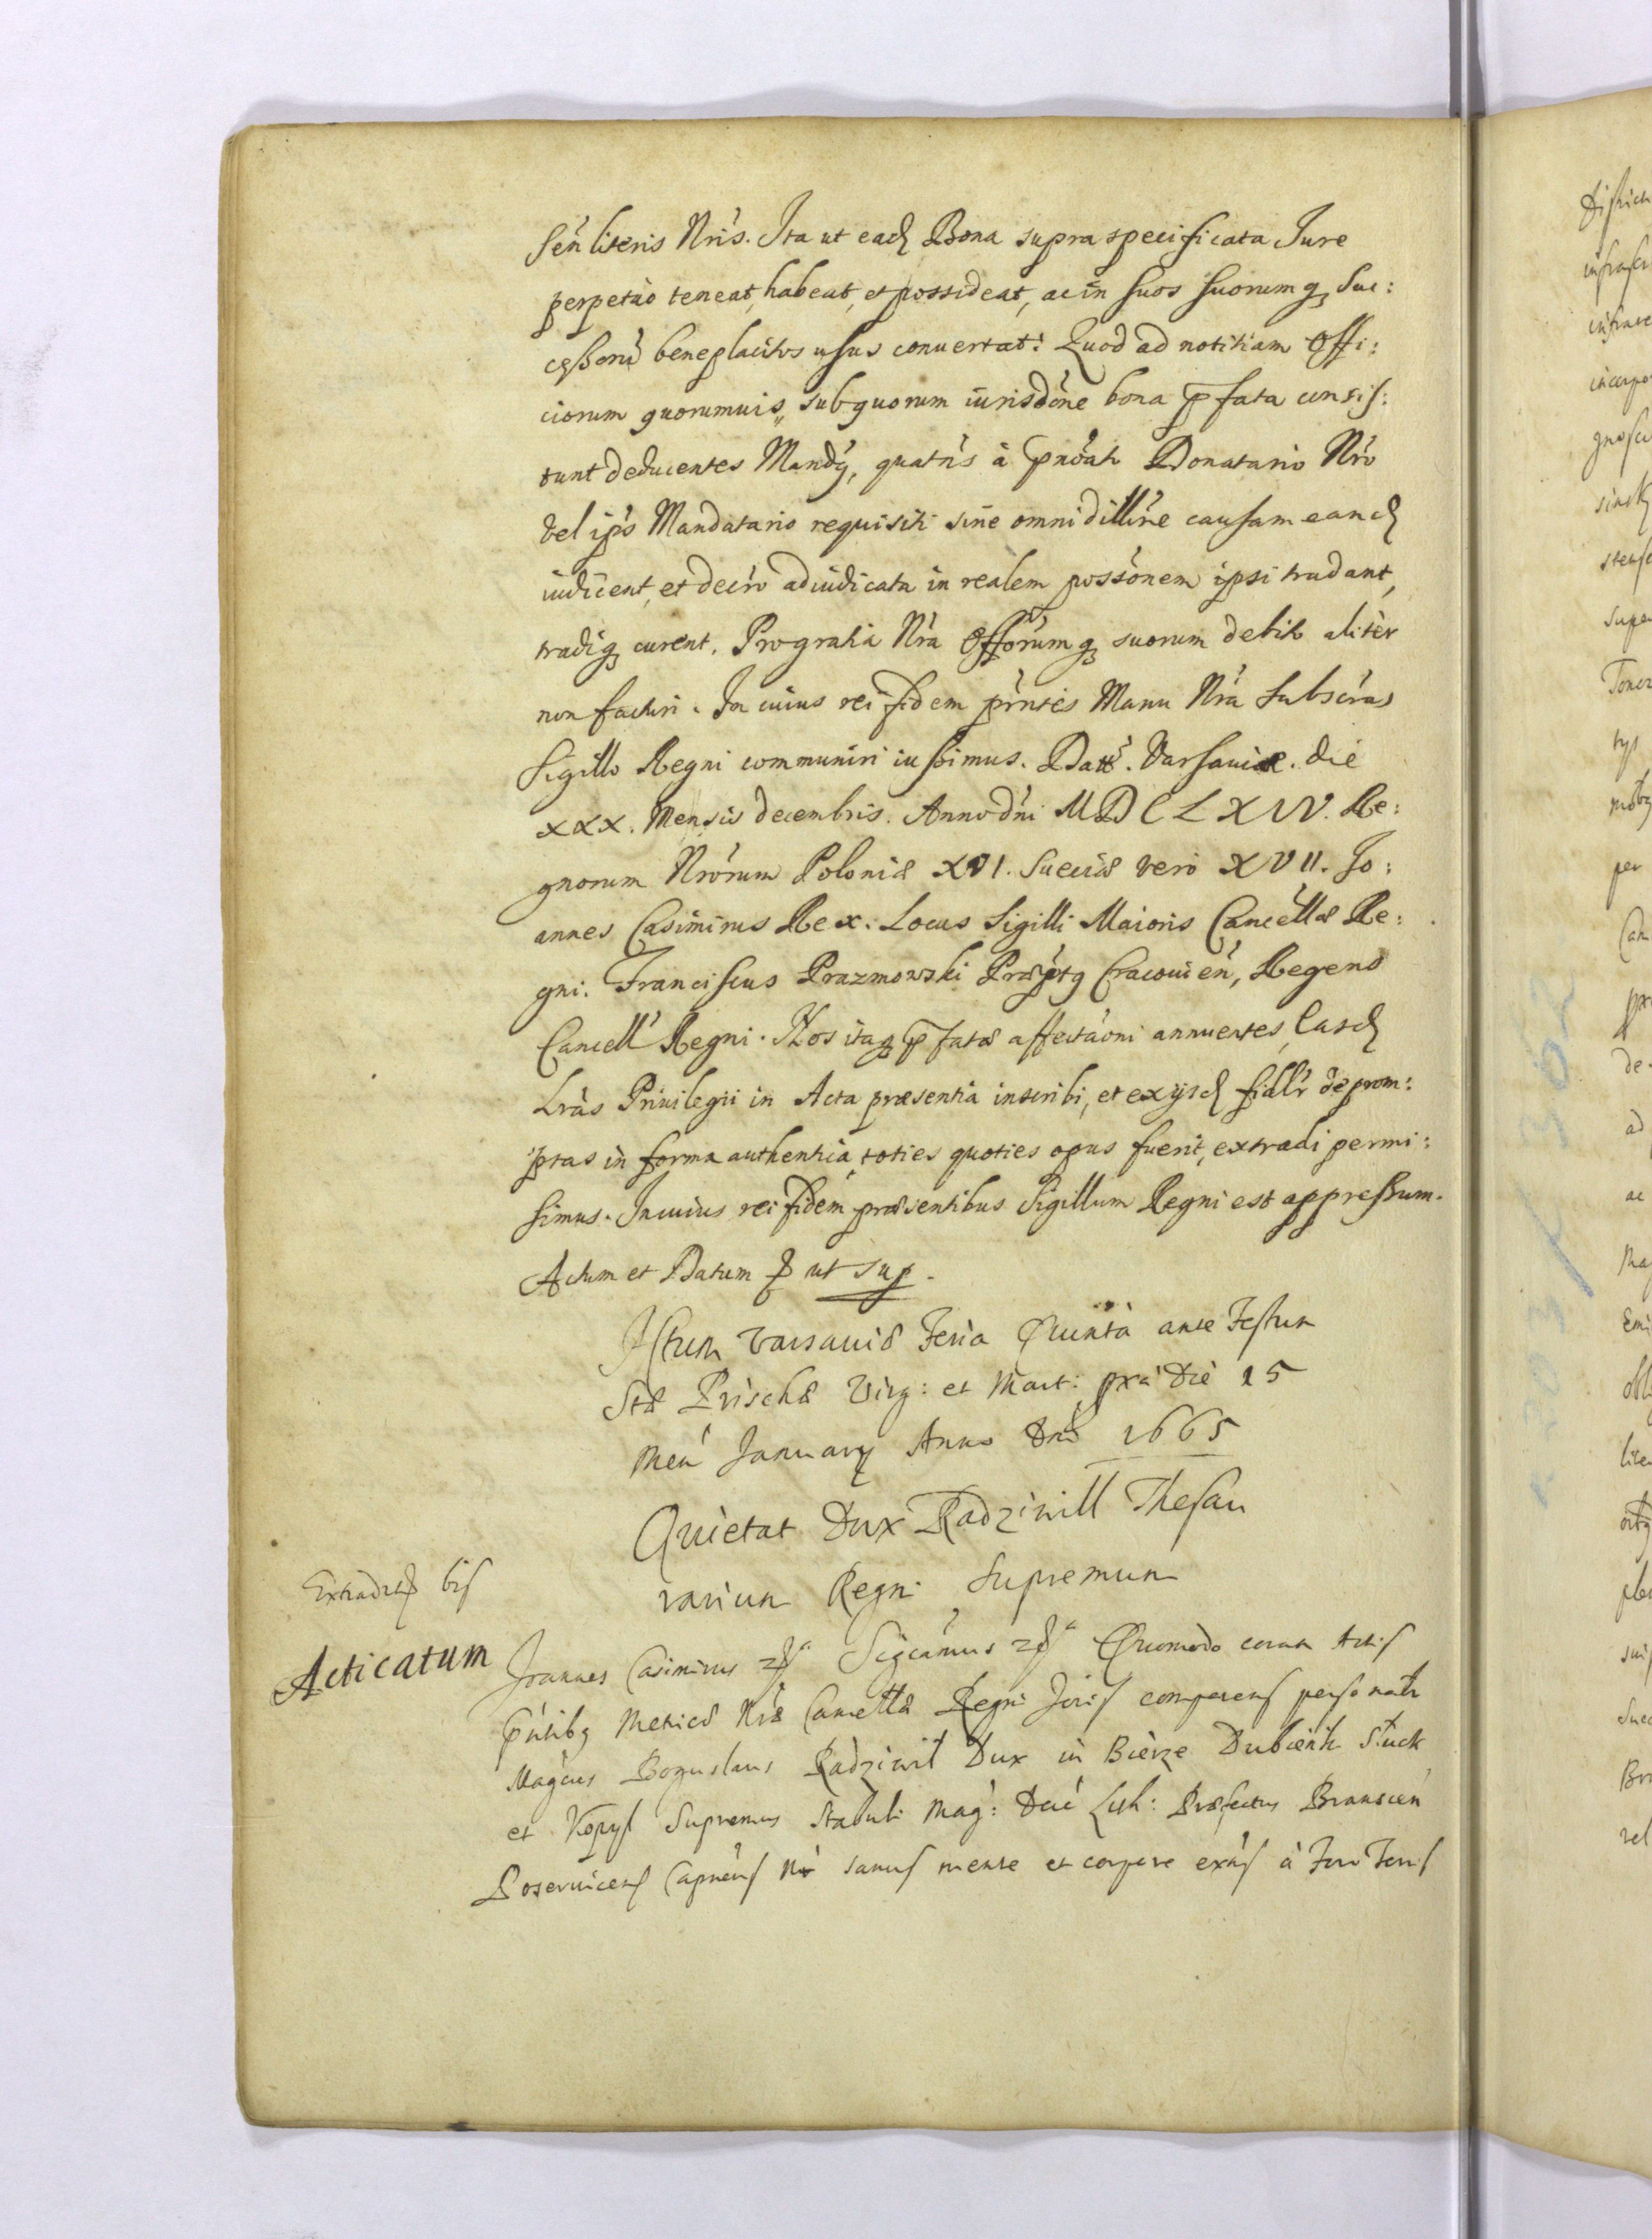 sén literis Nrís. Ita ut eadꝫ Bona supra specificata Jure
perpetuò teneat, habeat, et possideat, ac in suos suorumqꝫ Suc:
cessorũ beneplacitos usus conuertat: Quod ad notitiam Offi:
ciorum quorumuis, sub quorum iurisdóne bona p̃fata consis:
tunt deducentes Mandꝰ, quatńs à p̃nóato Donatario Nŕo
vel ipŝo Mandatario requisiti sine omni dillńe causam eandꝫ
iudicent, et decŕo adiudicata in realem possónem ipsi tradant,
tradiqꝫ curent. Pro gratia Nŕa Offórumqꝫ suorum debito alitèr
non facturi. In cuius rei fidem pŕntes Manu Nŕa Subscŕas
Sigillo Regni communiri iussimus. Datt. Varsauiæ. die
XXX. Mensis decembris. Anno dńi MDCLXIV. Re:
gnorum Nŕorum Poloniæ XVI. Sueciæ vero XVII. Jo:
annes Casimirus Rex. Locus Sigilli Maioris Cancéllæ Re:
gni. Franciscus Prazmowski Præpŝtꝰ Cracouień, Regens
Cancell Regni. Nos itaqꝫ p̃fatæ affectaóni annuentes, Easdꝫ
Lŕas Priuilegii in Acta præsentia inscribi, et ex ijsdꝫ fidlŕ deprom:
ptas in forma authentica, toties quoties opus fuerit, extradi permi:
simus. In cuius rei fidem præsentibus Sigillum Regni est appressum.
Actum et Datum ut sup.
Actum Varsauiæ Feria Quinta ante Festum
Stæ Prischæ Virg: et Mart: Die 15
Meń January Anno Dńi 1665
Quietat Dux Radziwill Thesau
rarium Regni Supremum
Extradit bis
Acticatum
Joannes Casimirus Sigćamus Quomodo coram Actis
p̃ntibꝰ Metricæ Nŕæ Cancellæ Regni comparens personalr
Magćus Boguslaus Radziwil Dux in Bierze Dubienki Sluck
et Kopyl Supremus Stabuli Mag: Dućć Lith: Præfectus Bransceń
Poseruicens Capneus Nŕ sanus mente et corpore exńs à Foro